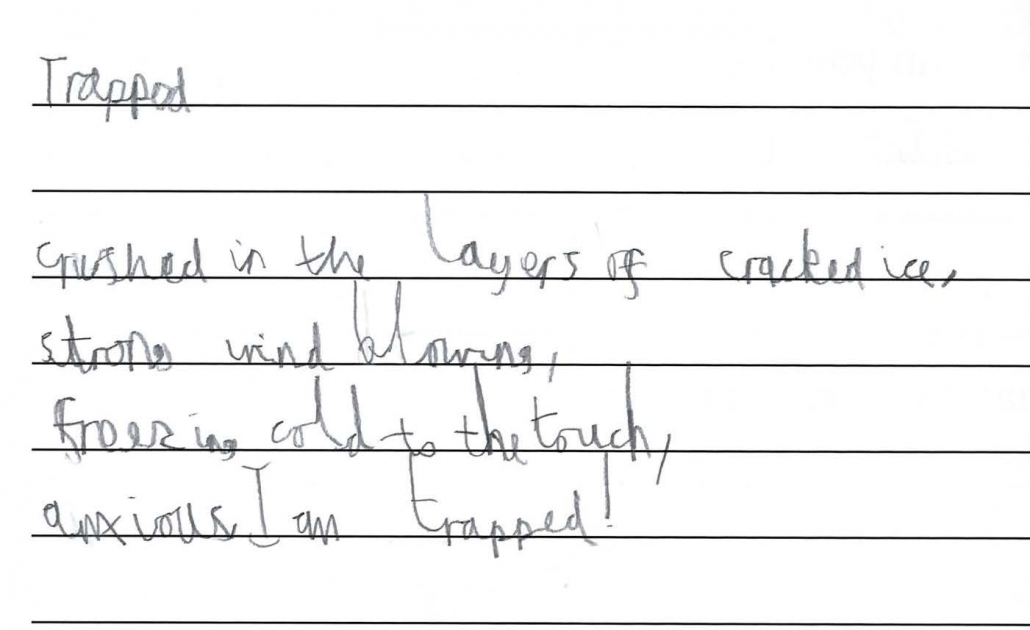 Trapped
crushed in the layers of cracked ice,
strong wind blowing,
freezing cold to the touch,
anxious I am trapped!